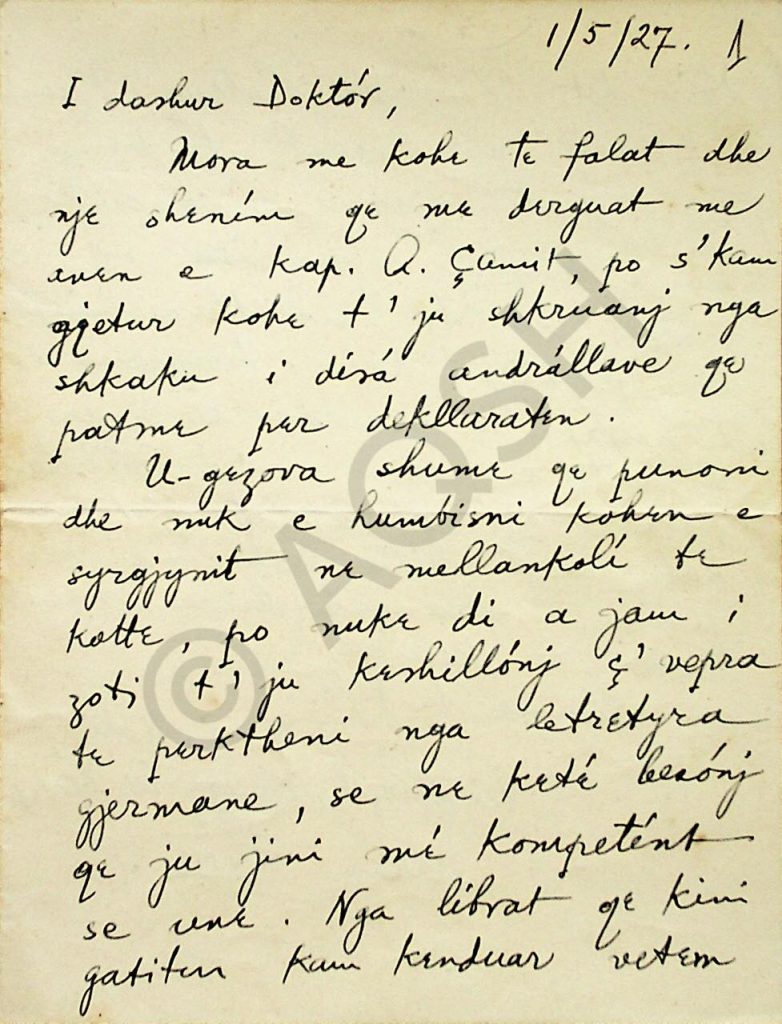 1/5/27. 1
I dashur Doktór,
Mora me kohe te falat dhe
nje shením qe me derguat me
anen e kap. A. Çamit, po s'kam
gjetur kohe t'ju shkruanj nga
shkaku i dísá andrállave qe
patme per dekllaraten.
U-gezova shume qe punoni
dhe nuk e humbisni kohen e
syrgjynit ne mellankolí te
kotte, po nuke di a jam i
zoti t'ju keshillónj ç'vepra
te perktheni nga letretyra
gjermane, se ne keté besónj
qe ju jini mé kompetént
se une. Nga líbrat qe kini
gatitur kam kenduar vetem
© AQSH